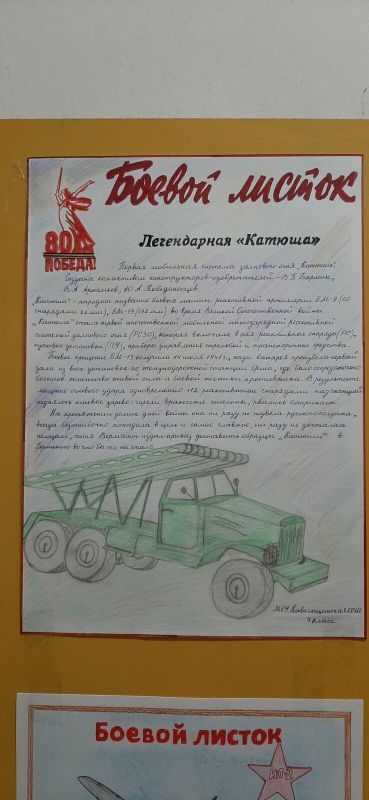 Боевой листок
80
ПОБЕДА!
Легендарная «Катюша»
Первая мобильная система залпового огня „Катюша“.
Создана коллективом конструкторов-изобретателей – В.
В. А. Артемьев, Ю. А. Победоносцев.
„Катюша“ - народное название боевых машин реактивной артиллерии БМ-8 (со
снарядами 82 мм), БМ-13 (132 мм) во время Великой Отечественной войны.
„Катюша“ стала первой отечественной мобильной многозарядной реактивной
системой залпового огня (РСЗО), которая включала в себя реактивные снаряды (РС),
пусковые установки (ПУ), приборы управления стрельбой и транспортные средства.
Боевое крещение БМ-13 получила 14 июля 1941 г., когда батарея произвела первый
залп из всех установок по железнодорожной станции Орша, где было сосредоточено
большое количество живой силы и боевой техники противника. В результате
мощного огневого удара одновременно 112 реактивными снарядами над станцией
поднялось огненное зарево: горели вражеские эшелоны, рвались боеприпасы.
На протяжении долгих дней войны она ни разу не подвела русского солдата,
всегда безошибочно попадала в цель и самое главное, ни разу не досталась
немцам, хотя Вермахт издал приказ доставить образцы „Катюши“ в
Германию во что бы то ни стало.
МОУ СОШ
4 класс
Боевой листок
ИЛ-2